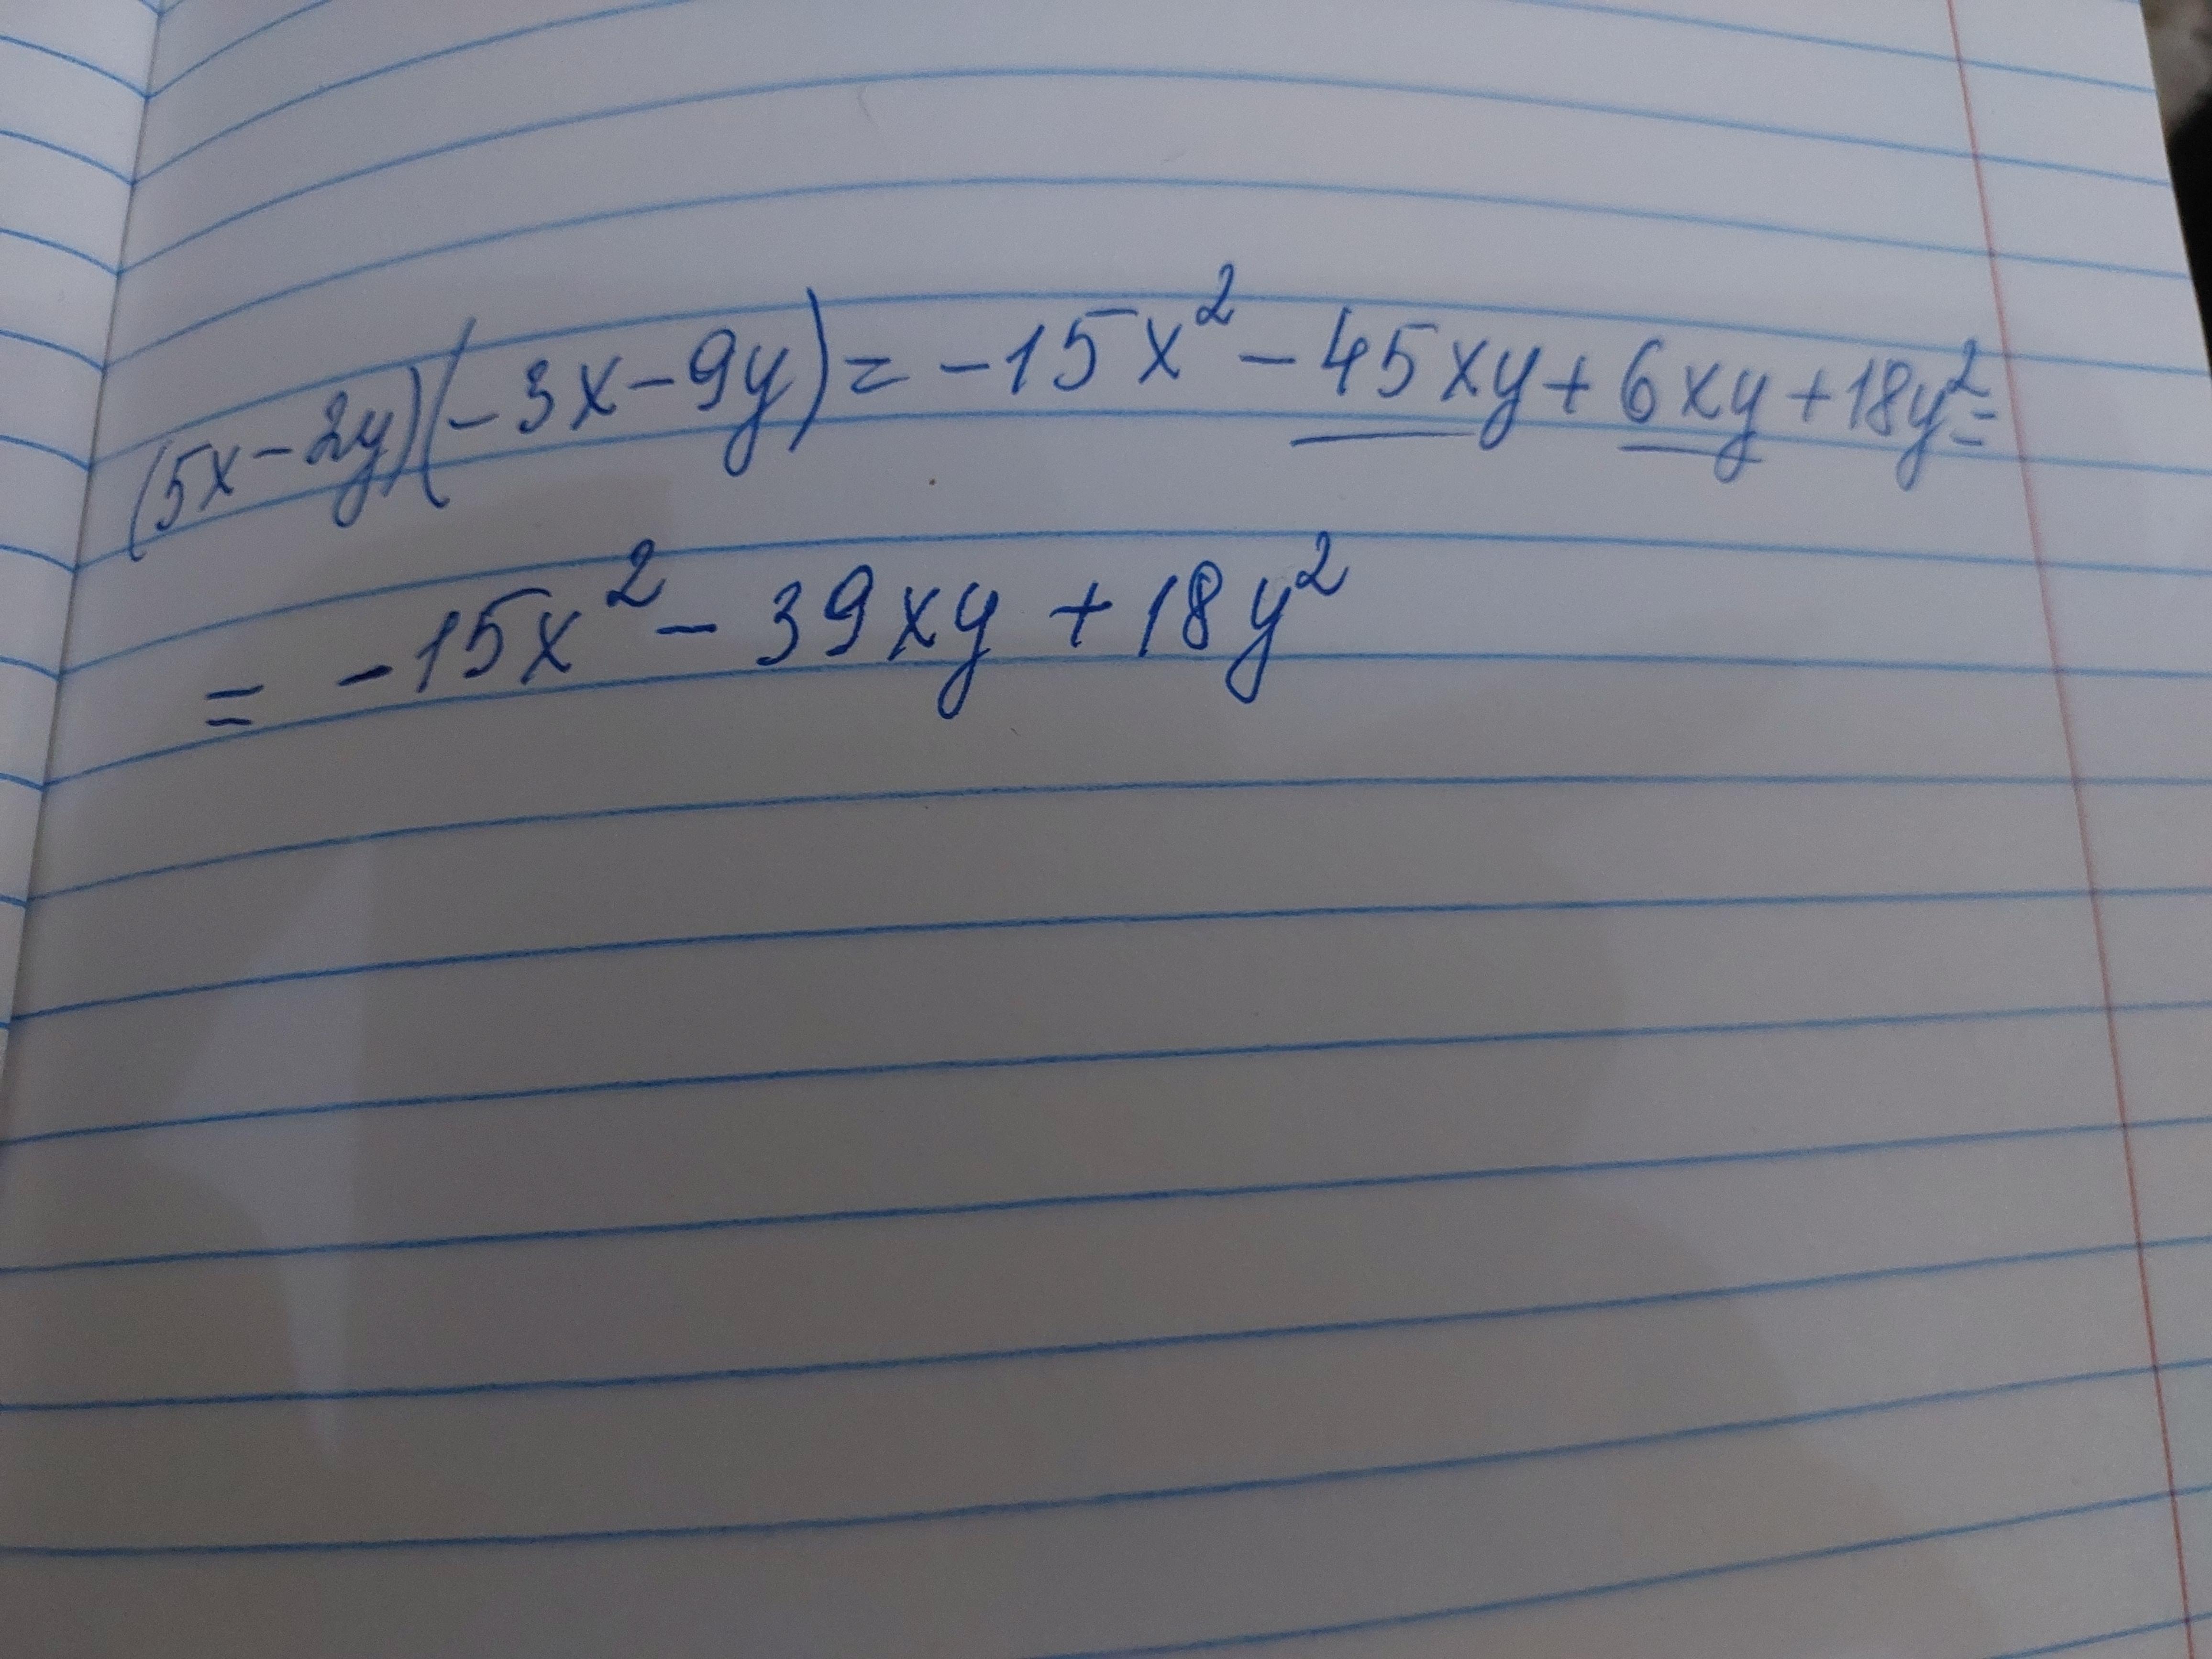 (5x-2y)(-3x-9y)= -15x²-45xy+6xy+18y²=
= -15x²-39xy+18y²